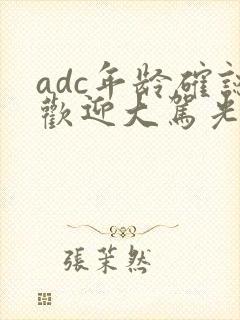 adc年龄確認
歡迎大駕光
張茉然